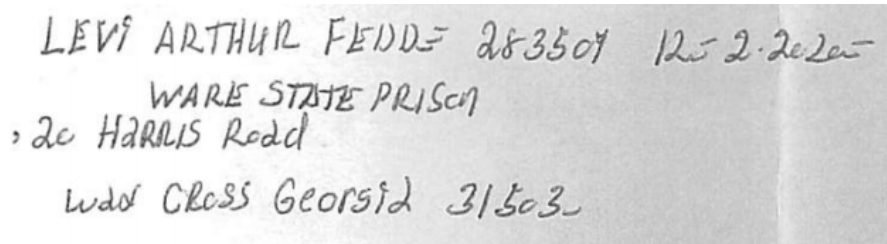 LEVI ARTHUR FEDD= 283509 12-2.2020-
WARE STATE PRISON
, 20 HARRIS Road
WAY CROSS Georgia 31503-